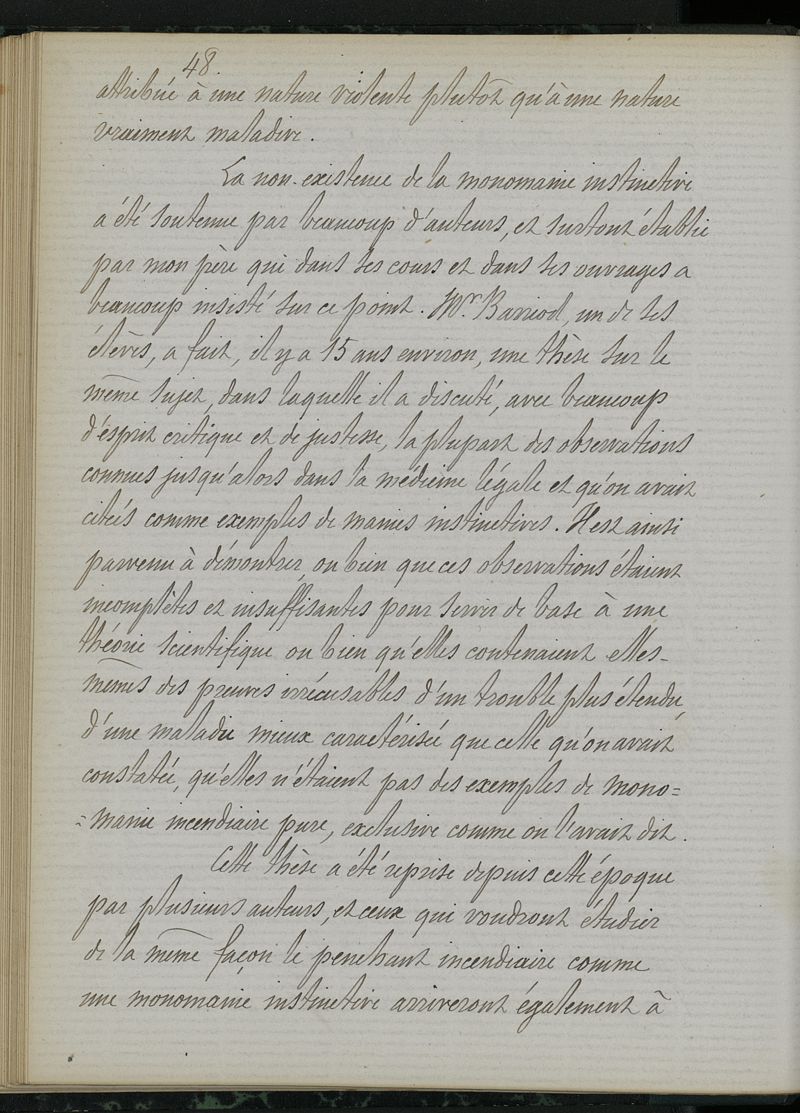 48.
attribué à une nature violente plutôt qu'à une nature
vraiment maladive.
La non-existence de la monomanie instinctive
a été soutenue par beaucoup d'auteurs, et surtout établie
par mon père qui dans ses cours et dans ses ouvrages a
beaucoup insisté sur ce point. Mr. Barriod, un de ses
élèves, a fait, il y a 15 ans environ, une thèse sur le
même sujet, dans laquelle il a discuté, avec beaucoup
d'esprit critique et de justesse, la plupart des observations
connues jusqu'alors dans la médecine légale et qu'on avait
citées comme exemples de manies instinctives. Il est ainsi
parvenu à démontrer ou bien que ces observations étaient
incomplètes et insuffisantes pour servir de base à une
théorie scientifique ou bien qu'elles contenaient elles-
mêmes des preuves irrécusables d'un trouble plus étendu,
d'une maladie mieux caractérisée que celle qu'on avait
constatée, qu'elles n'étaient pas des exemples de mono=
=manie incendiaire pure, exclusive comme on l'avait dit.
Cette thèse a été reprise depuis cette époque
par plusieurs auteurs, et ceux qui voudront étudier
de la même façon le penchant incendiaire comme
une monomanie instinctive arriveront également à